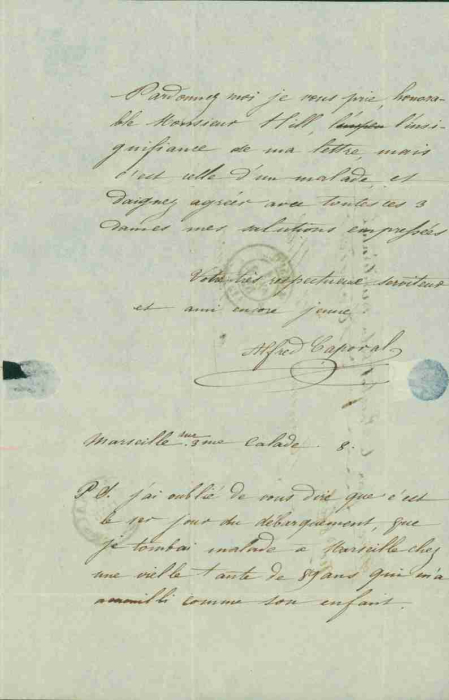 Pardonnez moi je vous prie, honora-
ble Monsieur Hill, l'insi-
gnifiance de ma lettre, mais
c'est celle d'un malade, et
daignez agréer avec toutes ces 3
dames mes salutions empressées
Votre très respectueux serviteur
et ami encore jeune
Alfred Caporal
Marseille rue Calade 8.
P S. j'ai oublié de vous dire que c'est
le 1er jour du débarquement, que
je tombai malade a Marseille chez
une vielle tante de 89 ans qui m'a
comme son enfant.